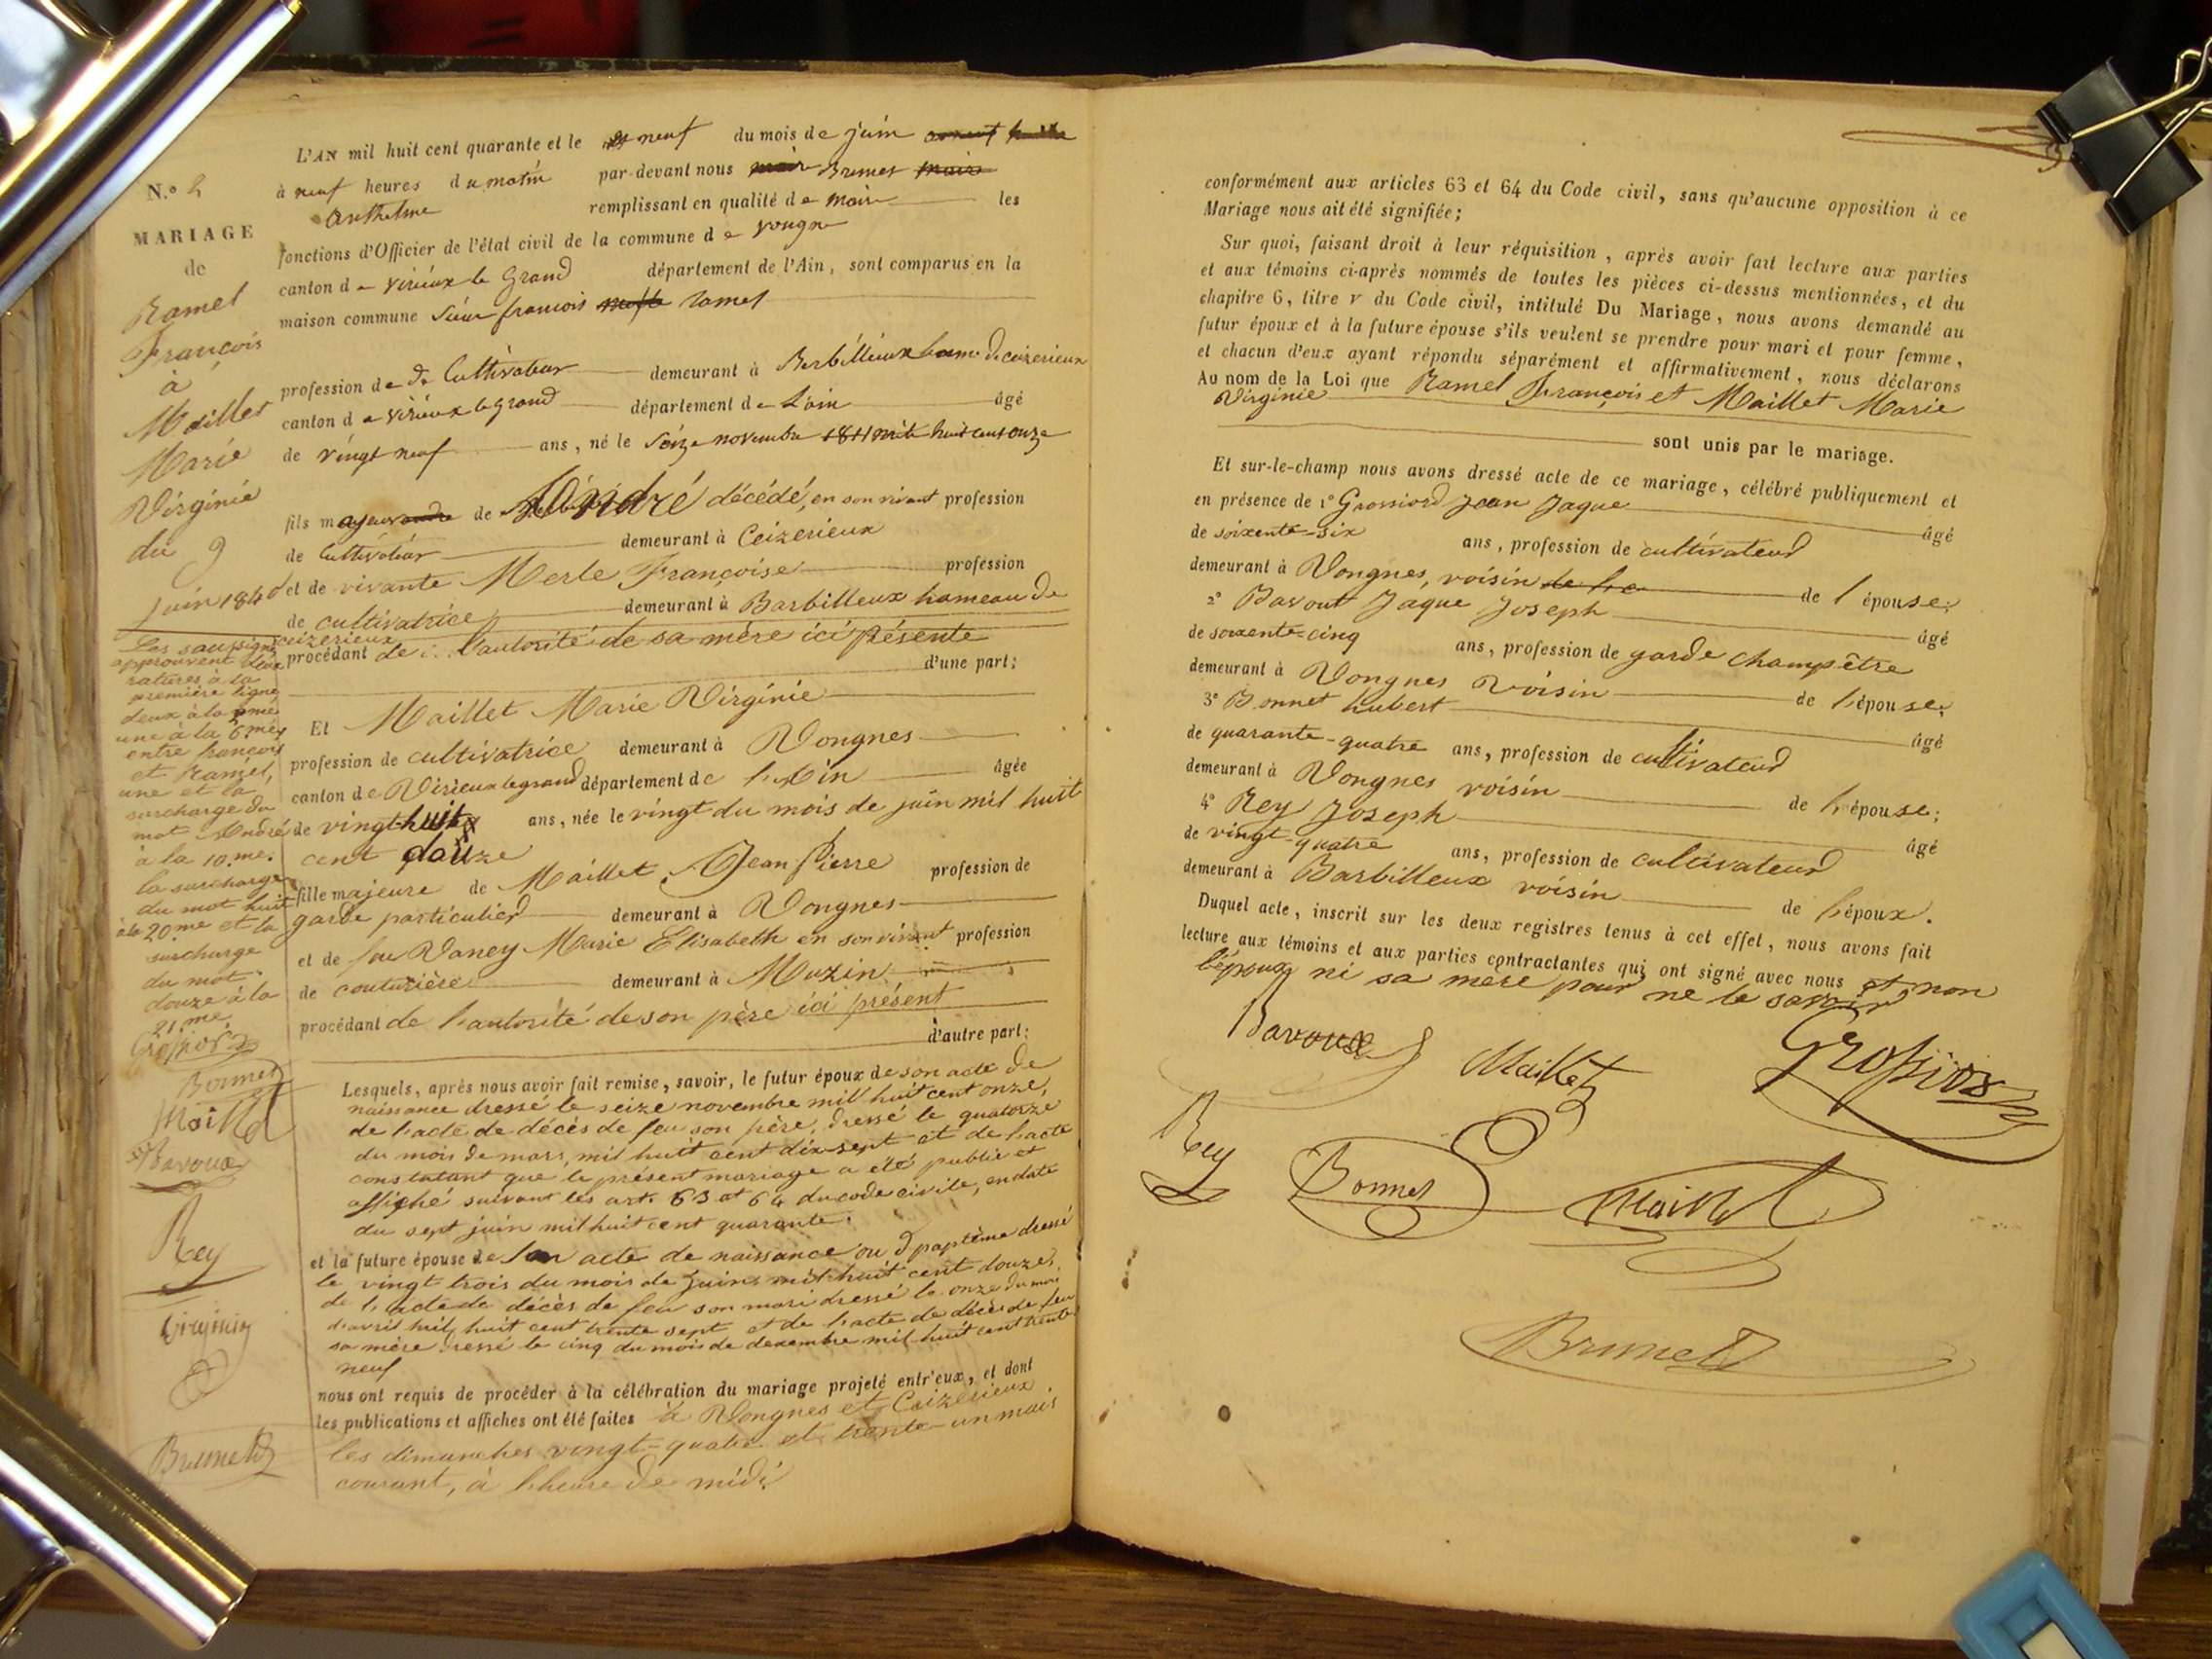 N.o 2
MARIAGE
de
Ramel
François
à
Maillet
Marie
Virginie
du 9
juin 1840
Les soussignés
approuvent deux
ratures à la
première ligne
deux à la 2me
une à la 6mes
entre françois
et Ramel,
une et la
surcharge du
mot André
à la 10.me.
la surcharge
du mot huit
à la 20me et la
surcharge
du mot
douze à la
21.me
Grossiord
Bonnet
Maillet
Bavoux
Rey
Virginie
Brunet
L'AN mil huit cent quarante et le neuf du mois de juin
à neuf heures du matin par-devant nous Brunet
Anthelme remplissant en qualité de maire les
fonctions d'Officier de l'état civil de la commune de vongne
canton de virieux le Grand département de l'Ain, sont comparus en la
maison commune Sieur francois ramel
profession de de Cultivateur demeurant à Berbilleux hame de ceizerieux
canton de virieux le grand département de L'ain âgé
de vingt neuf ans, né le Seize novembre 1811 mile huit cent onze
fils majeur de André décédé, en son vivant profession
de Cultivateur demeurant à Ceizerieux
et de vivante Merle Françoise profession
de cultivatrice demeurant à Barbilleux hameau de
ceizerieux
procédant de l'autorité de sa mère ici présente
d'une part;
Et Maillet Marie Virginie
profession de cultivatrice demeurant à Vongnes
canton de Virieux le grand département de l'Ain âgée
de vingt huit ans, née le vingt du mois de juin mil huit
cent douze
fille majeure de Maillet Jean Pierre profession de
garde particulier demeurant à Vongnes
et de feu Vaney Marie Elisabeth en son vivant profession
de couturière demeurant à Muzin
procédant de l'autorité de son père ici présent
d'autre part:
Lesquels, après nous avoir fait remise, savoir, le futur époux de son acte de
naissance dressé le seize novembre mil huit cent onze,
de l'acte de décès de feu son père, dressé le quatorze
du mois de mars, mil huit cent dix-sept et de l'acte
constatant que le présent mariage a été publié et
affiché suivant les art. 63 et 64 du code civile, en date
du sept juin mil huit cent quarante.
et la future épouse de son acte de naissance ou d paptême dressé
le vingt trois du mois de juins mil huit cent douze,
de l'acte de décès de feu son mari dressé le onze du mois
d'avril mil huit cent trente sept et de l'acte de décès de feu
sa mère dressé le cinq du mois de dexembre mil huit cent trente
neuf
nous ont requis de procéder à la célébration du mariage projeté entr'eux, et dont
les publications et affiches ont été faites à Vongnes et Ceizerieux
les dimanches vingt-quatre et trente-un mais
courant, à l'heure de midi
conformément aux articles 63 et 64 du Code civil, sans qu'aucune opposition à ce
Mariage nous ait été signifiée;
Sur quoi, faisant droit à leur réquisition, après avoir fait lecture aux parties
et aux témoins ci-après nommés de toutes les pièces ci-dessus mentionnées, et du
chapitre 6, titre v du Code civil, intitulé Du Mariage, nous avons demandé au
futur époux et à la future épouse s'ils veulent se prendre pour mari et pour femme,
et chacun d'eux ayant répondu séparément et affirmativement, nous déclarons
Au nom de la Loi que Ramel François et Maillet Marie
Virginie
sont unis par le mariage.
Et sur-le-champ nous avons dressé acte de ce mariage, célébré publiquement et
en présence de 1° Grossiord Jean Jaque âgé
de soixente-six ans, profession de cultivateur
demeurant à Vongnes, voisin de l'épouse;
2° Bavout Jaque Joseph âgé
de soixente-cinq ans, profession de garde champêtre
demeurant à Vongnes voisin de l'épouse;
3° Bonnet hubert âgé
de quarante-quatre ans, profession de cultivateur
demeurant à Vongnes voisin de l'épouse;
4° Rey Joseph âgé
de vingt-quatre ans, profession de cultivateur
demeurant à Barbilleux voisin de l'époux.
Duquel acte, inscrit sur les deux registres tenus à cet effet, nous avons fait
lecture aux témoins et aux parties contractantes qui ont signé avec nous et non
l'époux ni sa mère pour ne le savoir
Bavoux Maillet Grossiord
Rey Bonnet Maillet
Brunet